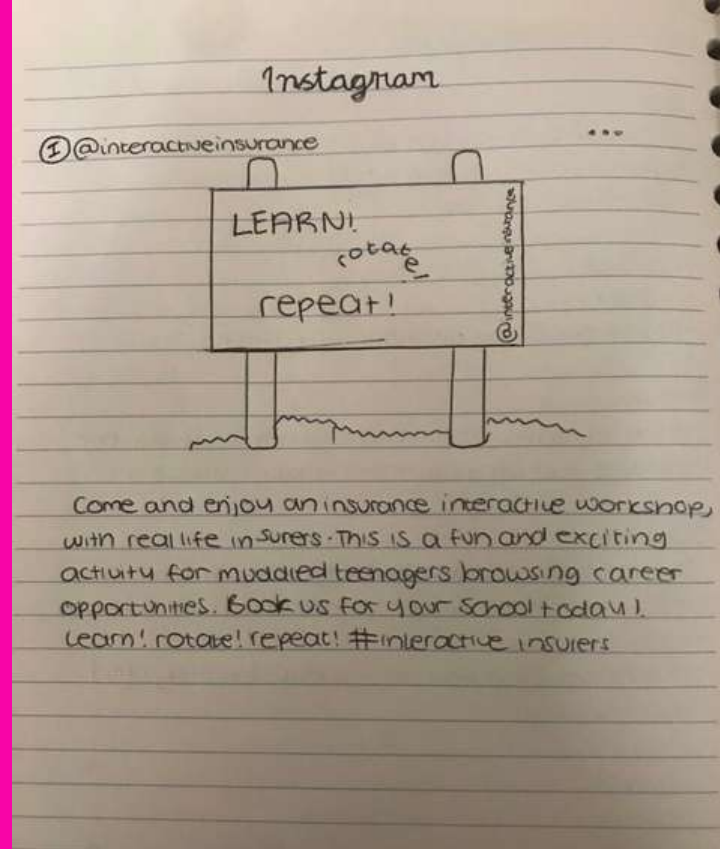 Instagram
I @interactiveinsurance ...
LEARN!
rotate!
repeat!
@interactiveinsurance
Come and enjoy an insurance interactive workshop,
with real life insurers. This is a fun and exciting
activity for muddled teenagers browsing career
opportunities. Book us for your school today!
Learn! rotate! repeat! #interactive insurers